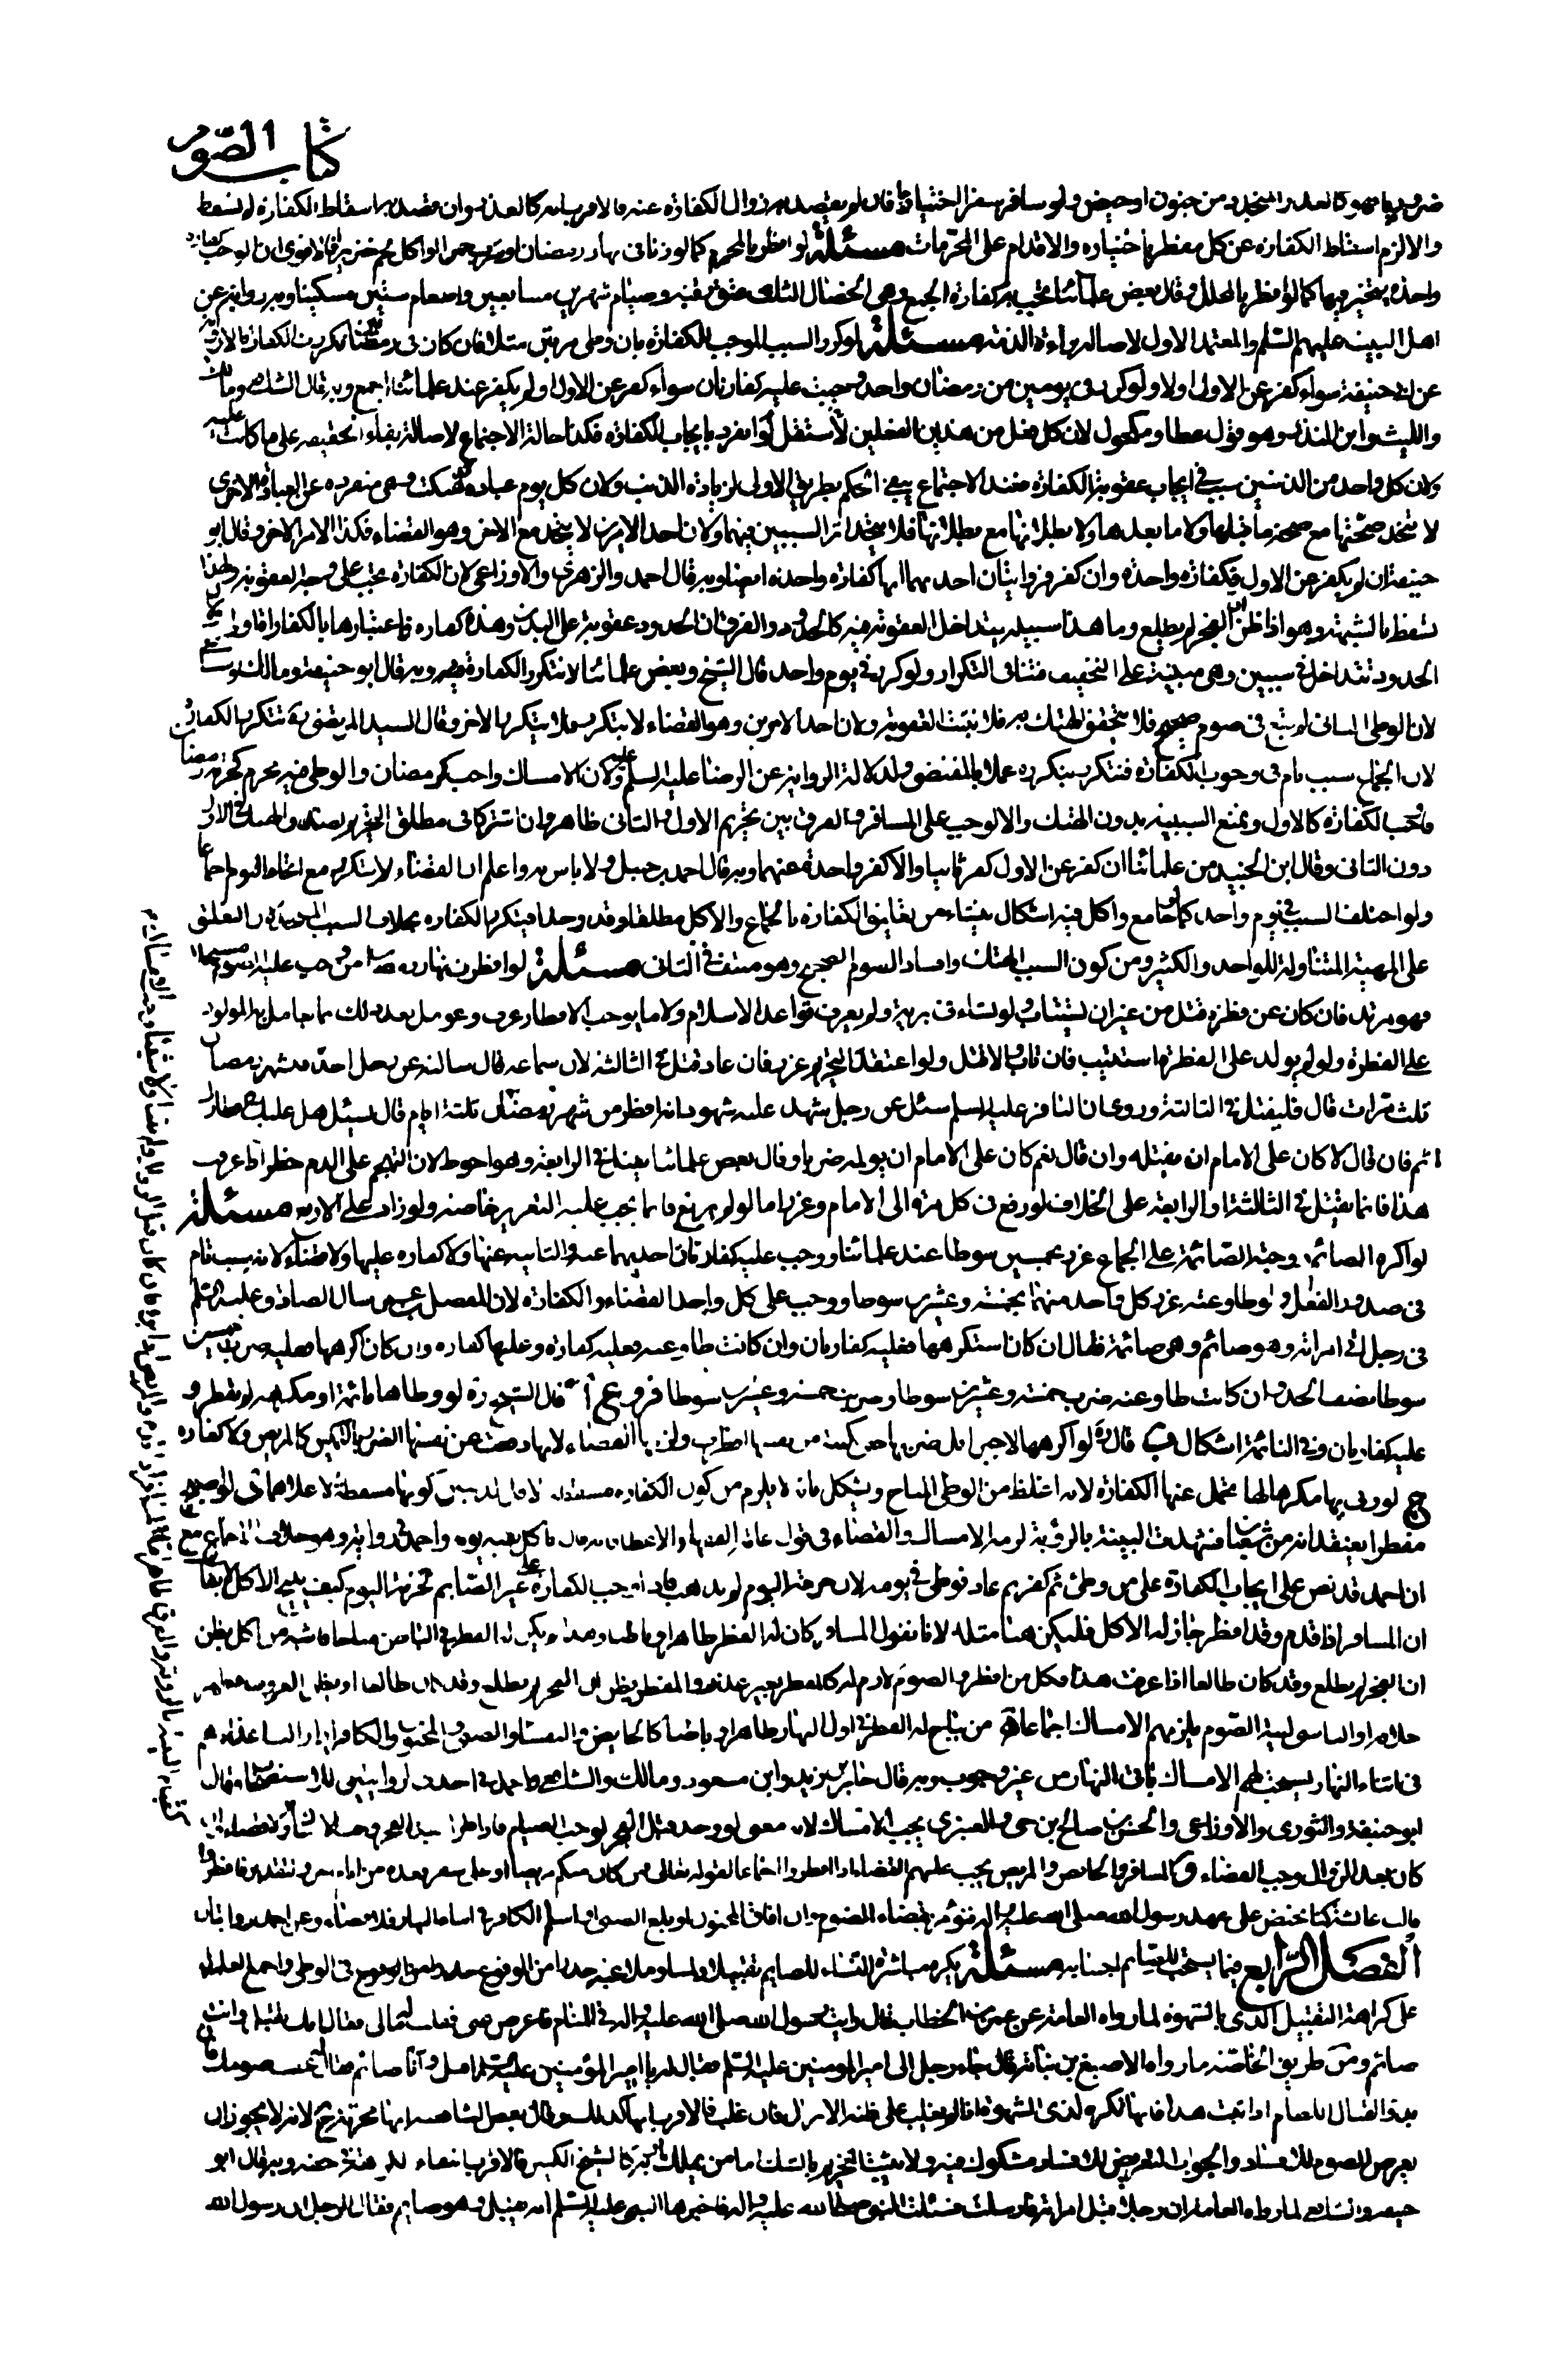 كتاب الصوم
ضروريا فهو كالعذر المتجدد من جنون او حيض ولو سافر سفرا اختياريا فان لم يقصد به زوال الكفارة عنه فالاقرب انه كالعذر وان قصد به اسقاط الكفارة لم تسقط
والا لزم اسقاط الكفارة عن كل مفطر باختياره والاقدام على المحرمات مسئلة لو افطر بالمحرم كما لو زنا في نهار رمضان او شرب خمرا او اكل لحم خنزير فالاقوى ان الواجب كفارة
واحدة يتخير فيها كما لو افطر بالمحلل وقال بعض علمائنا تجب به كفارة الجمع وهي الخصال الثلث عتق رقبة وصيام شهرين متتابعين واطعام ستين مسكينا وبه رواية عن
اهل البيت عليهم السلم والمعتمد الاول لاصالة براءة الذمة مسئلة لو كرر السبب الموجب للكفارة بان وطى مرتين مثلا فان كان في رمضانين تكررت الكفارة الا في رواية
عن ابي حنيفة سواء كفر عن الاول اولا ولو كرر في يومين من رمضان واحد وجبت عليه كفارتان سواء كفر عن الاول او لم يكفر عند علمائنا اجمع وبه قال الشافعي ومالك
والليث وابن المنذر وهو قول عطا ومكحول لان كل فعل من هذين الفعلين لو استقل انفرد بايجاب الكفارة فكذا حالة الاجتماع لاصالة بقاء الحقيقة على ما كانت عليه
ولان كل واحد من الذنبين سبب في ايجاب عقوبة الكفارة فعند الاجتماع يبقى الحكم بطريق الاولى لزيادة الذنب ولان كل يوم عبادة منفردة عن العبادة الاخرى
لا تتحد صحتها مع صحة ما قبلها ولا ما بعدها ولا بطلانها مع بطلانها فلا يتحد اثر السببين فيهما ولان احد الامرين لا يتحد مع الاخر وهو القضاء فكذا الامر الاخر وقال ابو
حنيفة ان لم يكفر عن الاول فكفارة واحدة وان كفر فروايتان احديهما انها كفارة واحدة ايضا وبه قال احمد والزهري والاوزاعي لان الكفارة تجب على وجه العقوبة ولهذا
تسقط بالشبهة وهو اذا ظن ان الفجر لم يطلع وما هذا سبيله يتداخل العقوبة فيه كالحدود والفرق ان الحدود عقوبة على البدن وهذه كفارة فاعتبارها بالكفارات اولى
الحدود تتداخل في سببين وهي مبنية على التخفيف فتنافي التكرار ولو كرر في يوم واحد قال الشيخ وبعض علمائنا لا تتكرر الكفارة فيه وبه قال ابو حنيفة ومالك
لان الوطى الثاني لم يقع في صوم صحيح فلا يتحقق الهتك به فلا تثبت العقوبة ولان احد الامرين وهو القضاء لا يتكرر فلا يتكرر الاخر وقال السيد المرتضى ره تتكرر الكفارة
لان الجماع سبب تام في وجوب الكفارة فتتكرر بتكرره عملا بالمقتضى ولدلالة الرواية عن الرضا عليه السلم عليه ولان الامساك واجب كرمضان والوطى فيه محرم كحرمة رمضان
فتجب الكفارة كالاول ويمنع السببية بدون الهتك والا لوجب على المسافر والفرق بين تحريم الاول والثاني ظاهر وان اشتركا في مطلق التحريم والهتك في الاول
دون الثاني وقال ابن الجنيد من علمائنا ان كفر عن الاول كفر ثانيا والا كفر واحدة عنهما وبه قال احمد بن حنبل ولا باس به واعلم ان القضاء لا يتكرر مع اتحاد اليوم اجماعا
ولو اختلف السبب في يوم واحد كما لو جامع واكل فيه اشكال ينشاء من تعليق الكفارة بالجماع والاكل مطلقا وقد وجدا فتتكرر الكفارة بخلاف السبب المتحد لان التعلق
على المهية المتناولة للواحد والكثير ومن كون السبب الهتك وافساد الصوم الصحيح وهو منتف في الثاني مسئلة لو افطر في نهار رمضان من وجب عليه الصوم مستحلا
فهو مرتد فان كان عن فطرة قتل من غير ان يستتاب ولو نشاء في برية ولم يعرف قواعد الاسلام ولا ما يوجب الافطار عرف وعومل بعد ذلك بما يعامل به المولود
على الفطرة ولو لم يولد على الفطرة استتيب فان تاب والا قتل ولو اعتقد التحريم عزر فان عاد قتل في الثالثة لان سماعة قال سالته عن رجل اخذ في شهر رمضان
ثلث مرات قال فليقتل في الثالثة وروي ان الباقر عليه السلم سئل عن رجل شهد عليه شهود انه افطر من شهر رمضان ثلثة ايام قال يسئل هل عليك في افطارك
اثم فان قال لا كان على الامام ان يقتله وان قال نعم كان على الامام ان يؤلمه ضربا وقال بعض علمائنا يقتل في الرابعة وهو احوط لان التهجم على الدم خطر اذا عرفت
هذا فانما يقتل في الثالثة او الرابعة على الخلاف لو رفع في كل مرة الى الامام وعزر اما لو لم يرفع فانما يجب عليه التعزير خاصة ولو زاد على الاربع مسئلة
لو اكره الصائم زوجته الصائمة على الجماع عزر بخمسين سوطا عند علمائنا ووجب عليه كفارتان احديهما عنه والثانية عنها ولا كفارة عليها ولا قضاء لانه سبب تام
في صدور الفعل ولو طاوعته عزر كل واحد منهما بخمسة وعشرين سوطا ووجب على كل واحد القضاء والكفارة لان المفضل بن عمر سال الصادق عليه السلم
في رجل اتى امراته وهو صائم وهي صائمة فقال ان كان استكرهها فعليه كفارتان وان كانت طاوعته فعليه كفارة وعليها كفارة وان كان اكرهها فعليه ضرب خمسين
سوطا نصف الحد وان كانت طاوعته ضرب خمسة وعشرين سوطا وضربت خمسة وعشرين سوطا فروع ا قال الشيخ ره لو وطاها نائمة او مكرهة لم تفطر و
عليه كفارتان وفي النائمة اشكال ب قال ره لو اكرهها لا اجبارا بل ضربها حتى مكنت من نفسها افطرت ولزمها القضاء لانها دفعت عن نفسها الضرر بالتمكين كالمريض ولا كفارة
ج لو زنى بها مكرها لها تحمل عنها الكفارة لانه اغلظ من الوطى المباح ويشكل بانه لا يلزم من كون الكفارة مسقطة لاقل الذنبين كونها مسقطة لاعلاهما د لو اصبح
مفطرا يعتقد انه من شعبان فشهدت البينة بالرؤية لزمه الامساك والقضاء في قول عامة الفقهاء الا عطاء فانه قال ياكل بقية يومه واحمد في رواية وهو خلاف الاجماع مع
ان احمد قد نص على ايجاب الكفارة على من وطئ ثم كفر ثم عاد فوطئ في يومه لان حرمة اليوم لم تذهب فاذا وجب الكفارة على غير الصايم لحرمة اليوم كيف يبيح الاكل لا يقال
ان المسافر اذا قدم وقد افطر جاز له الاكل فليكن هنا مثله لانا نقول المسافر كان له الفطر ظاهرا وباطنا وهذا لم يكن له الفطر في الباطن مباحا فاشبه من اكل يظن
ان الفجر لم يطلع وقد كان طالعا اذا عرفت هذا فكل من افطر والصوم لازم له كالمفطر بغير عذر والمفطر يظن ان الفجر لم يطلع وقد كان طالعا او يظن الغروب فظهر
خلافه او الناسي لنية الصوم يلزمهم الامساك اجماعا اما من يباح له الفطر في اول النهار ظاهرا وباطنا كالحايض والنفساء والصبي والمجنون والكافر اذا زالت اعذارهم
في اثناء النهار يستحب لهم الامساك باقي النهار من غير وجوب وبه قال جابر بن يزيد وابن مسعود ومالك والشافعي واحمد في احدى الروايتين وقال
ابو حنيفة والثوري والاوزاعي والحسن بن صالح بن حي والعنبري يجب الامساك لانه معنى لو وجد قبل الفجر لوجب الصيام فاذا طرا بعد الفجر
كان بعد الزوال وجب القضاء والمسافر والحائض والمريض يجب عليهم القضاء اذا افطروا اجماعا لقوله تعالى فمن كان منكم مريضا او على سفر فعدة من ايام اخر بتقدير فافطروا
قالت عائشة كنا نحيض على عهد رسول الله صلى الله عليه واله فنؤمر بقضاء الصوم وان افاق المجنون او بلغ الصبي او اسلم الكافر في اثناء النهار فلا قضاء وعن احمد روايتان
الفصل الرابع فيما يستحب للصايم اجتنابه مسئلة يكره مباشرة النساء للصايم تقبيلا ولمسا وملاعبة حذرا من الوقوع في الوطى واجمع العلماء
على كراهة التقبيل لذي الشهوة لما رواه العامة عن عمر بن الخطاب قال رايت رسول الله صلى الله عليه واله في المنام فاعرض عني فقلت له ما لي فقال انك تقبل وانت
صائم ومن طريق الخاصة ما رواه الاصبغ بن نباتة قال جاء رجل الى امير المومنين عليه السلم فقال له يا امير المؤمنين عليه السلم اقبل وانا صائم فقال له عف صومك فان
بدو القتال اللطام اذا ثبت هذا فانما تكره لذي الشهوة اذا لم يغلب على ظنه الانزال فان غلب فالاقرب انها كذلك وقال بعض الشافعية انها محرمة لانه لا يجوز ان
يعرض الصوم للافساد والجواب التعريض للافساد مشكوك فيه ولا يثبت التحريم بالشك اما من يملك اربه كالشيخ الكبير فالاقرب انتفاء الكراهة في حقه وبه قال ابو
حنيفة والشافعي لما رواه العامة ان رجلا قبل امراته فارسلت فسئلت النبي صلى الله عليه واله فاخبرها النبي عليه السلم انه يقبل وهو صايم فقال الرجل ان رسول الله